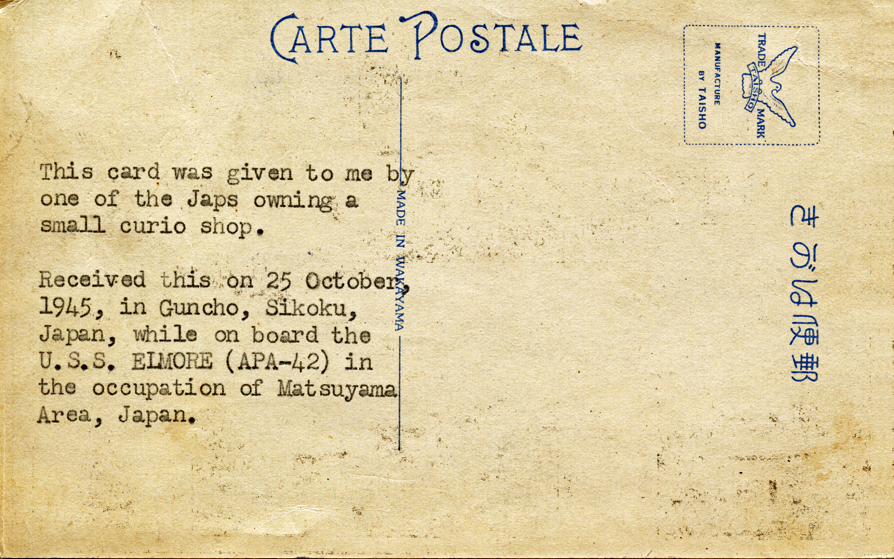 CARTE POSTALE
TRADE MARK
TAISHO
MANUFACTURE
BY TAISHO
This card was given to me by
one of the Japs owning a
small curio shop.
Received this on 25 October,
1945, in Guncho, Sikoku,
Japan, while on board the
U.S.S. ELMORE (APA-42) in
the occupation of Matsuyama
Area, Japan.
MADE IN WAKAYAMA
きがは便郵